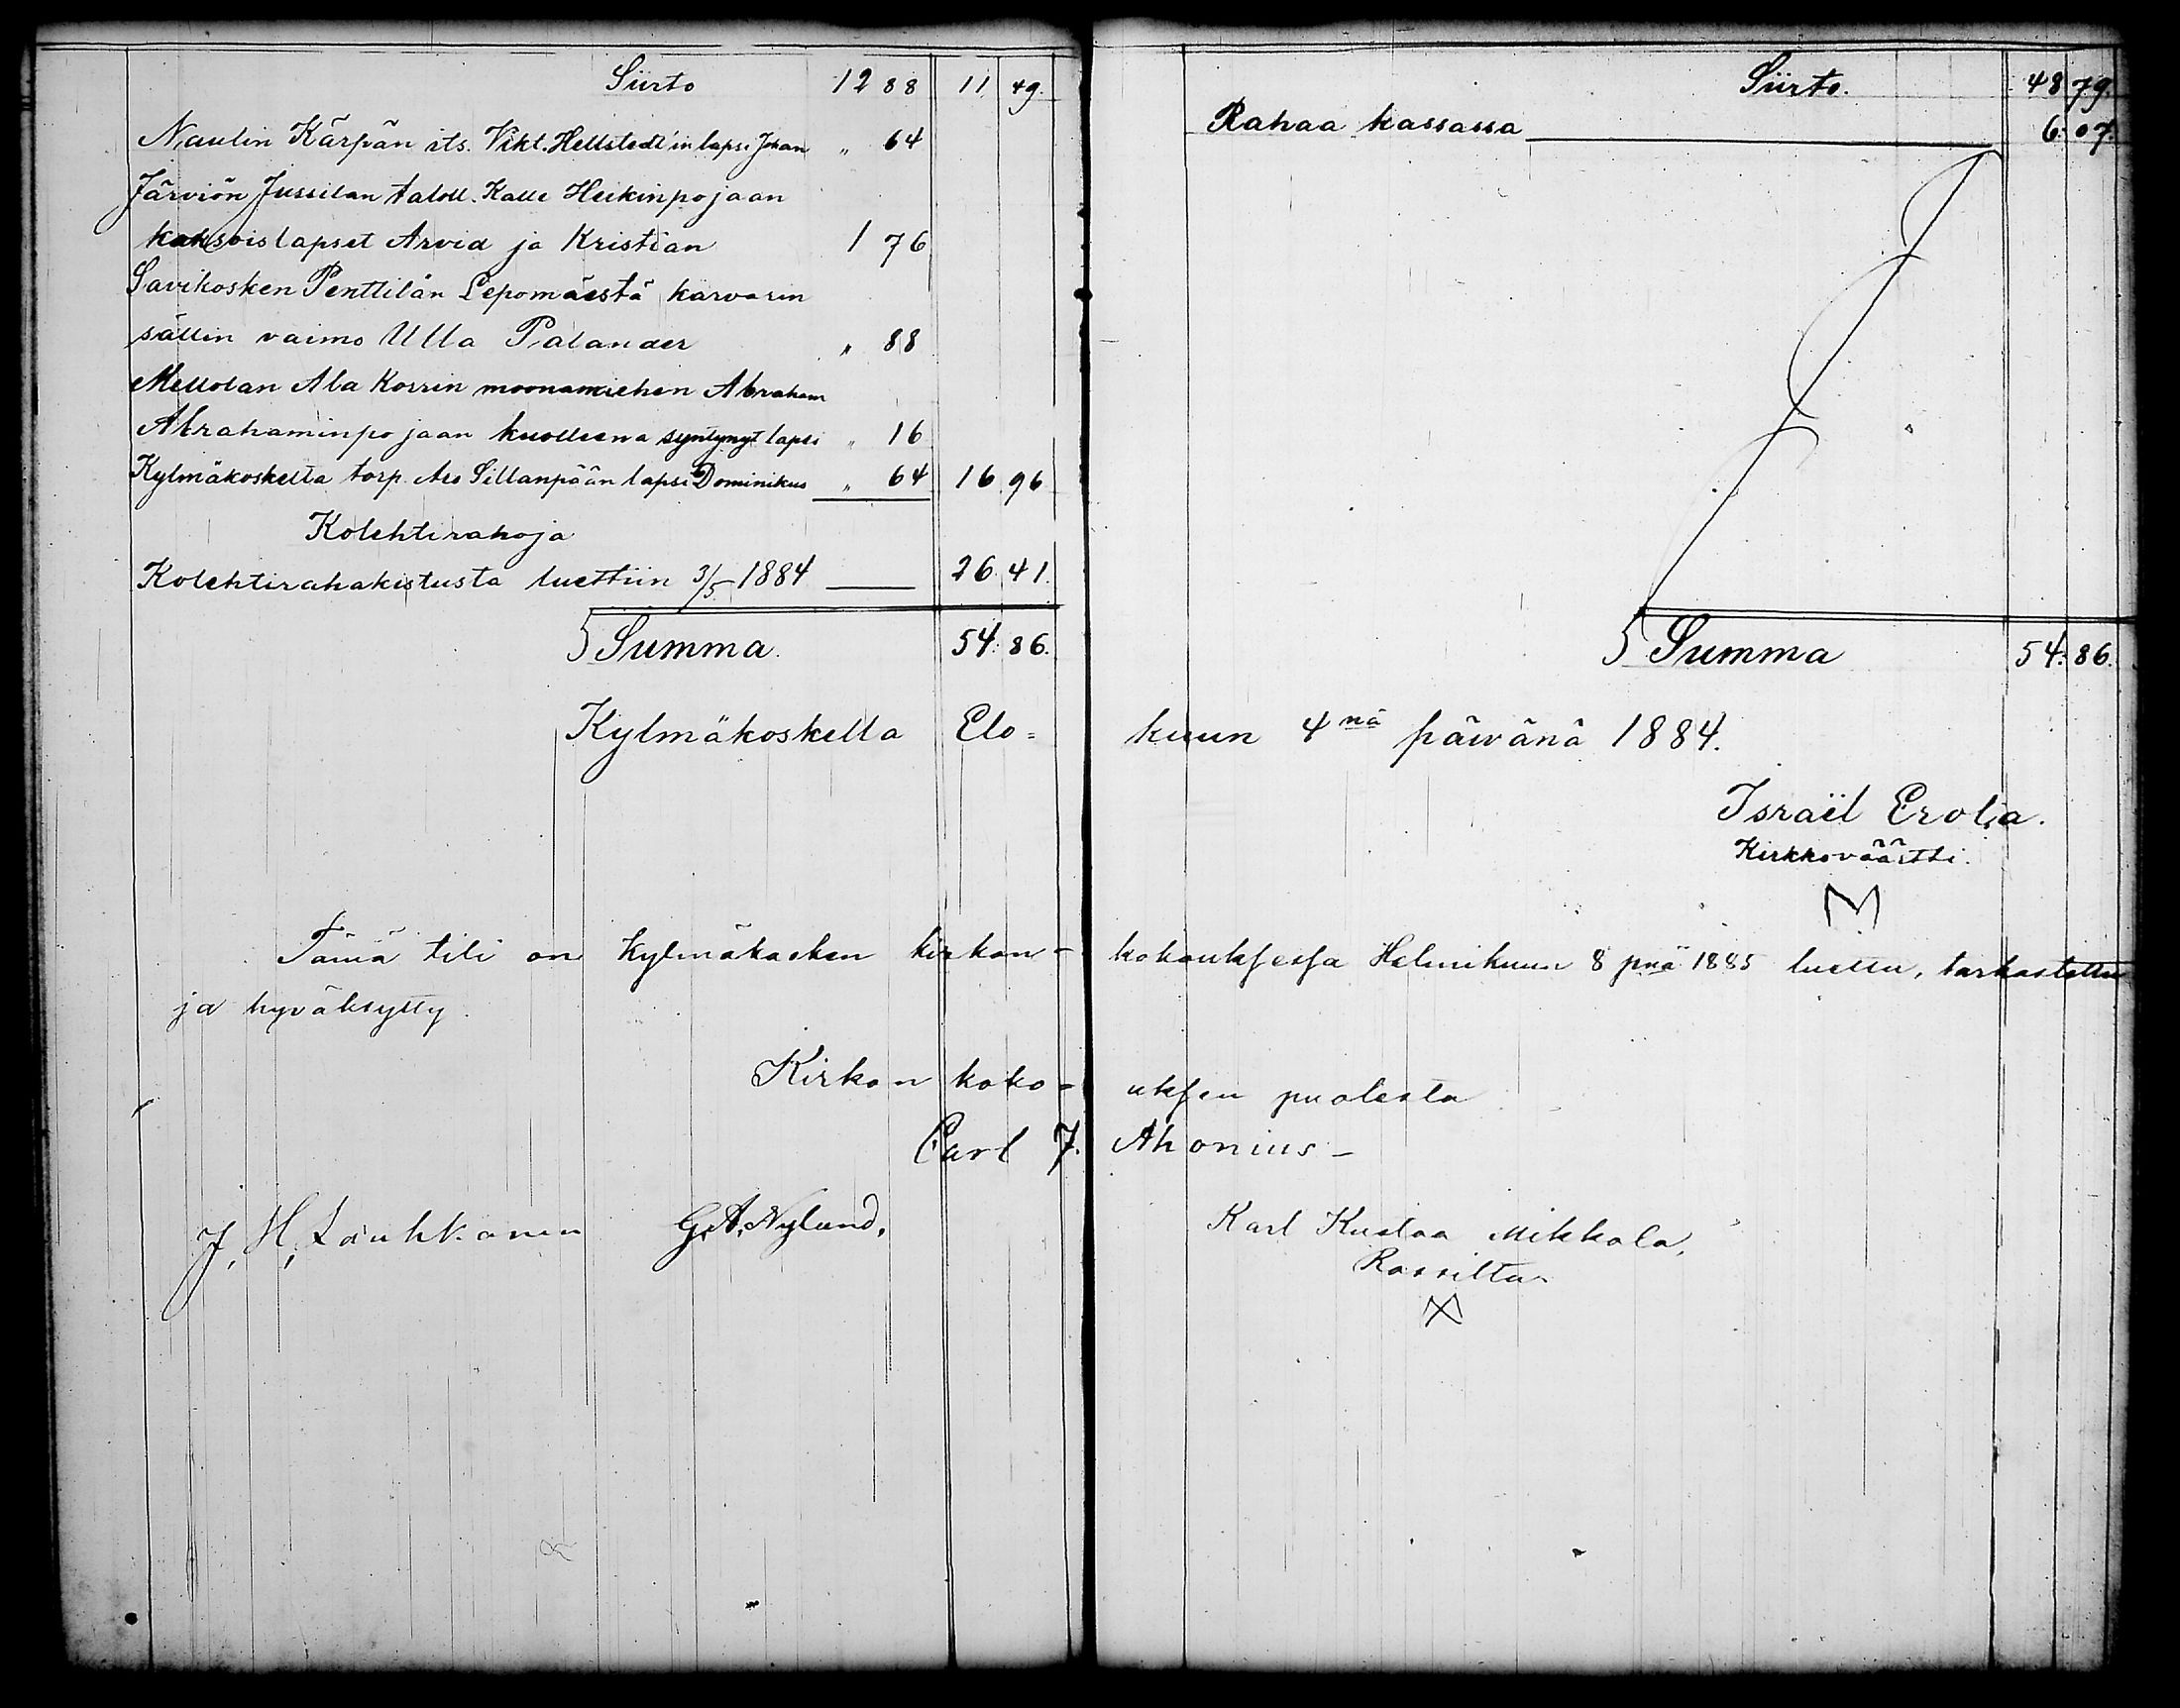 Siirto 12 88 11 49.
Naulin Kärpän its. Vikt. Hellstedt'in lapsi Johan " 64
Järviön Jussilan taloll. Kalle Heikinpojaan
kaksoislapset Arvid ja Kristian 1 76
Savikosken Penttilän Lepomäestä karvarin
sällin vaimo Ulla Palander " 88
Mellolan Ala Korrin moonamiehen Abraham
Abrahaminpojaan kuolleena syntynyt lapsi " 16
Kylmäkoskella torp. Aro Sillanpään lapsi Dominikus " 64 16 96
Kolehtirahoja
Kolehtirahakistusta luettiin 3/5 1884 26 41.
Summa. 54: 86.
Siirto. 48 79.
Rahaa kassassa 6: 07.
Summa 54: 86.
Kylmäkoskella Elo= kuun 4nä päivänä 1884.
Israël Erola.
Kirkkoväärtti.
Tämä tili on Kylmäkosken kirkon- kokouksessa Helmikuun 8 pnä 1885 luettu, tarkastettu
ja hyväksytty.
Kirkon koko- uksen puolesta
Carl J. Ahonius
J, H, Lauhkonen G. A. Nylund. Karl Kustaa Mikkola,
Rassilta